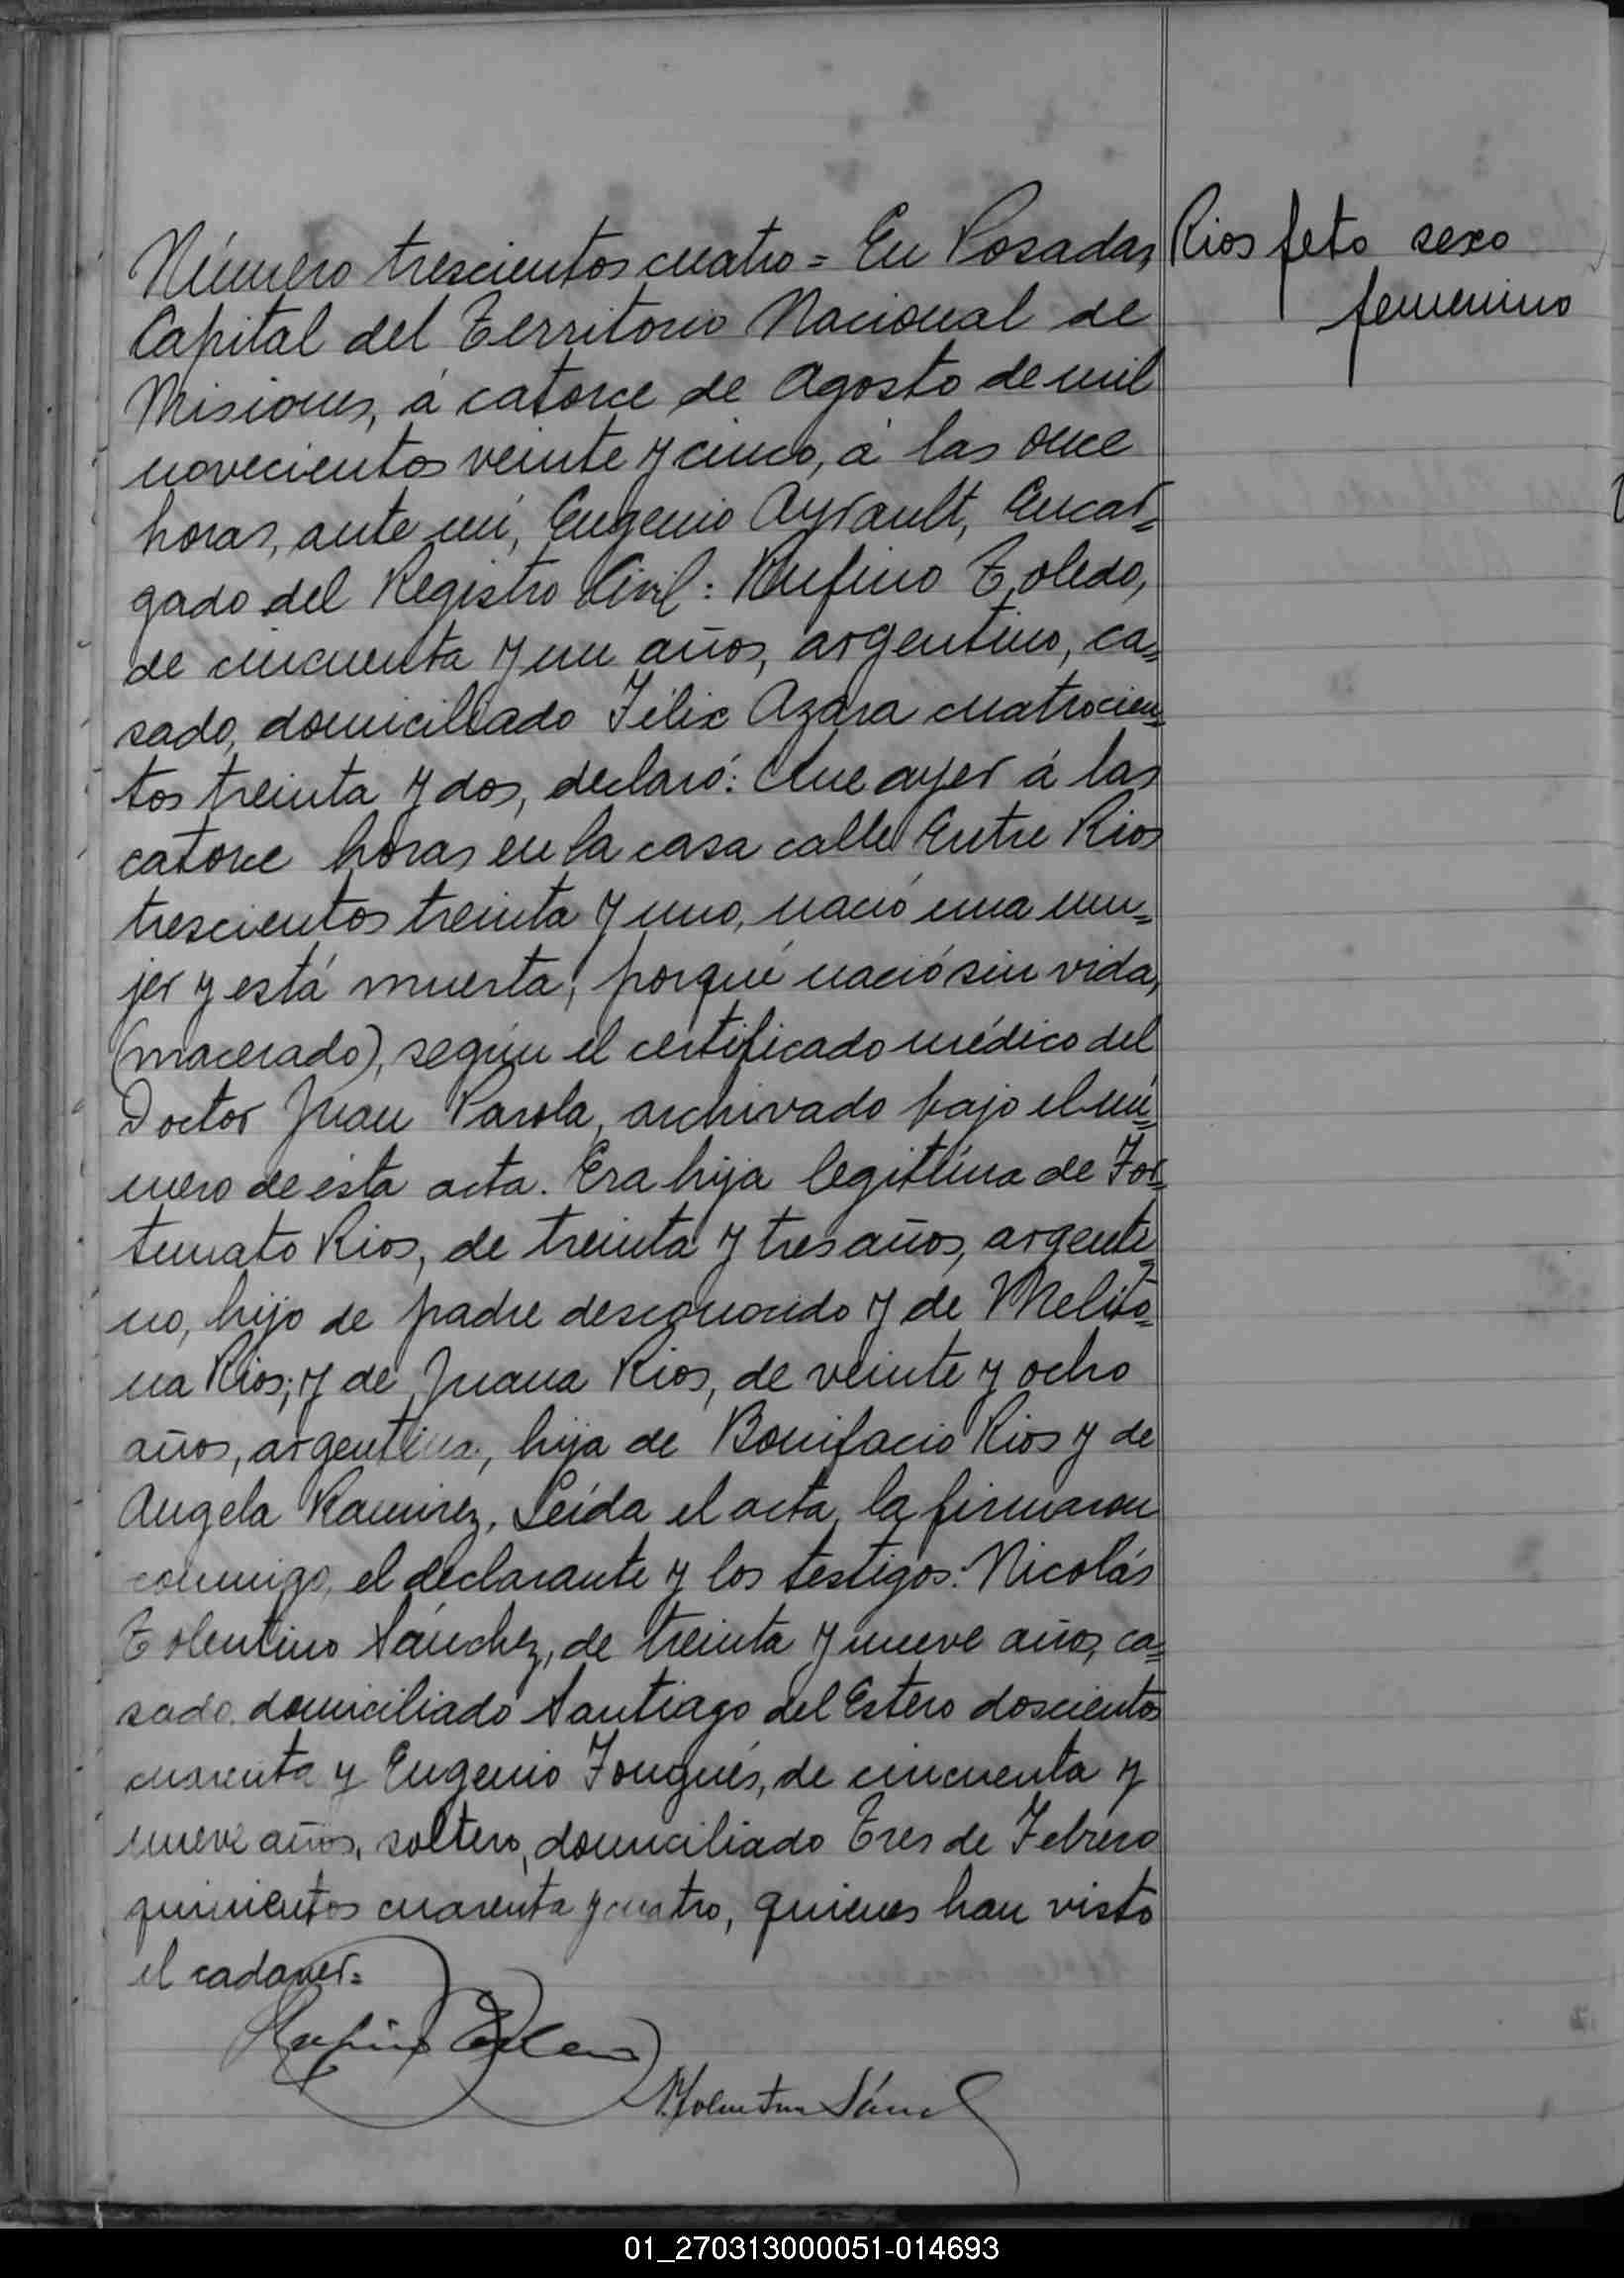 Número trescientos cuatro = En Posadas,
Capital del Territorio Nacional de
Misiones, á catorce de Agosto de mil
novecientos veinte y cinco, á las once
horas, ante mí, Eugenio Ayrault, Encar=
gado del Registro Civil: Rufino Toledo,
de cincuenta y un años, argentino, ca=
sado, domiciliado Félix Azara cuatrocien=
tos treinta y dos, declaró: Que ayer á las
catorce horas en la casa calle Entre Rios
trescientos treinta y uno, nació una mu=
jer y está muerta, porqué nació sin vida,
(macerado), según el certificado médico del
Doctor Juan Parola, archivado bajo el nú=
mero de ésta acta. Era hija legítima de For=
tunato Rios, de treinta y tres años, argenti=
no, hijo de padre desconocido y de Melito=
na Rios; y de Juana Rios, de veinte y ocho
años, argentina, hija de Bonifacio Rios y de
Angela Ramirez. Leída el acta, la firmaron
conmigo, el declarante y los testigos: Nicolás
Tolentino Sánchez, de treinta y nueve años, ca=
sado, domiciliado Santiago del Estero doscientos
cuarenta y Eugenio Fougués, de cincuenta y
nueve años, soltero, domiciliado Tres de Febrero
quinientos cuarenta y cuatro, quienes han visto
el cadaver.=
Rufino Toledo
N. Tolentino Sánchez
Rios feto sexo
femenino
01_270313000051-014693